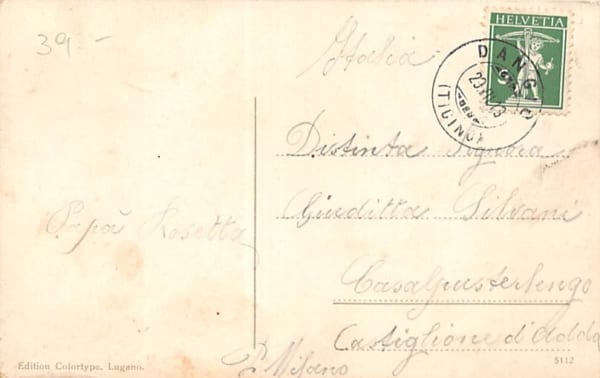 39 -
Italia
HELVETIA
5
DANGIO
(TICINO)
Distinta Signora
Giuditta Silvani
Papà Rosetta
Casalpusterlengo
Castiglione d'Adda
P. Milano
Edition Colortype, Lugano.
5112